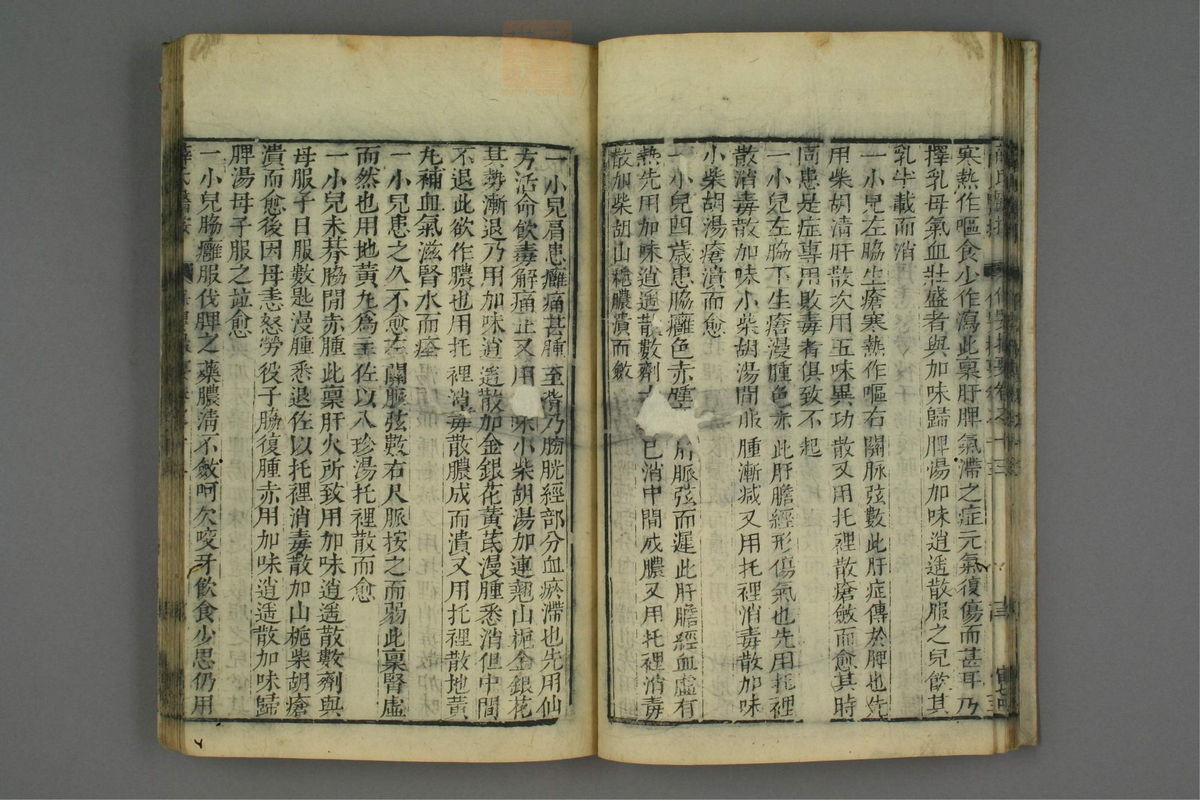 寒熱作嘔食少作瀉此稟肝脾氣滯之症元氣復傷而甚耳乃
擇乳母氣血壯盛者與加味歸脾湯加味逍遙散服之兒飲其
乳半載而消
一小兒左脇生瘡寒熱作嘔右關脉弦數此肝症傳於脾也先
用柴胡清肝散次用五味異功散又用托裡散瘡斂而愈其時
同患是症專用敗毒者俱致不起
一小兒左脇下生瘡漫腫色赤此肝膽經形傷氣也先用托裡
散消毒散加味小柴胡湯間服腫漸減又用托裡消毒散加味
小柴胡湯瘡潰而愈
一小兒四歲患脇癰色赤腫肝脈弦而遲此肝膽經血虛有
熱先用加味逍遙散數劑已消中間成膿又用托裡消毒
散加柴胡山梔膿潰而斂
一小兒肩患癰痛甚腫至背乃膀胱經部分血瘀滯也先用仙
方活命飲毒解痛止又用味小柴胡湯加連翹山梔金銀花
其勢漸退乃用加味逍遙散加金銀花黃芪漫腫悉消但中間
不退此欲作膿也用托裡消毒散膿成而潰又用托裡散地黃
丸補血氣滋腎水而痊
一小兒患之久不愈左關脈弦數右尺脈按之而弱此稟腎虛
而然也用地黃丸為主佐以八珍湯托裡散而愈
一小兒未朞脇間赤腫此稟肝火所致用加味逍遙散數劑與
母服子日服數匙漫腫悉退佐以托裡消毒散加山梔柴胡瘡
潰而愈後因母恚怒勞役子脇復腫赤用加味逍遙散加味歸
脾湯母子服之並愈
一小兒脇癰服伐脾之藥膿清不斂呵欠咬牙飲食少思仍用